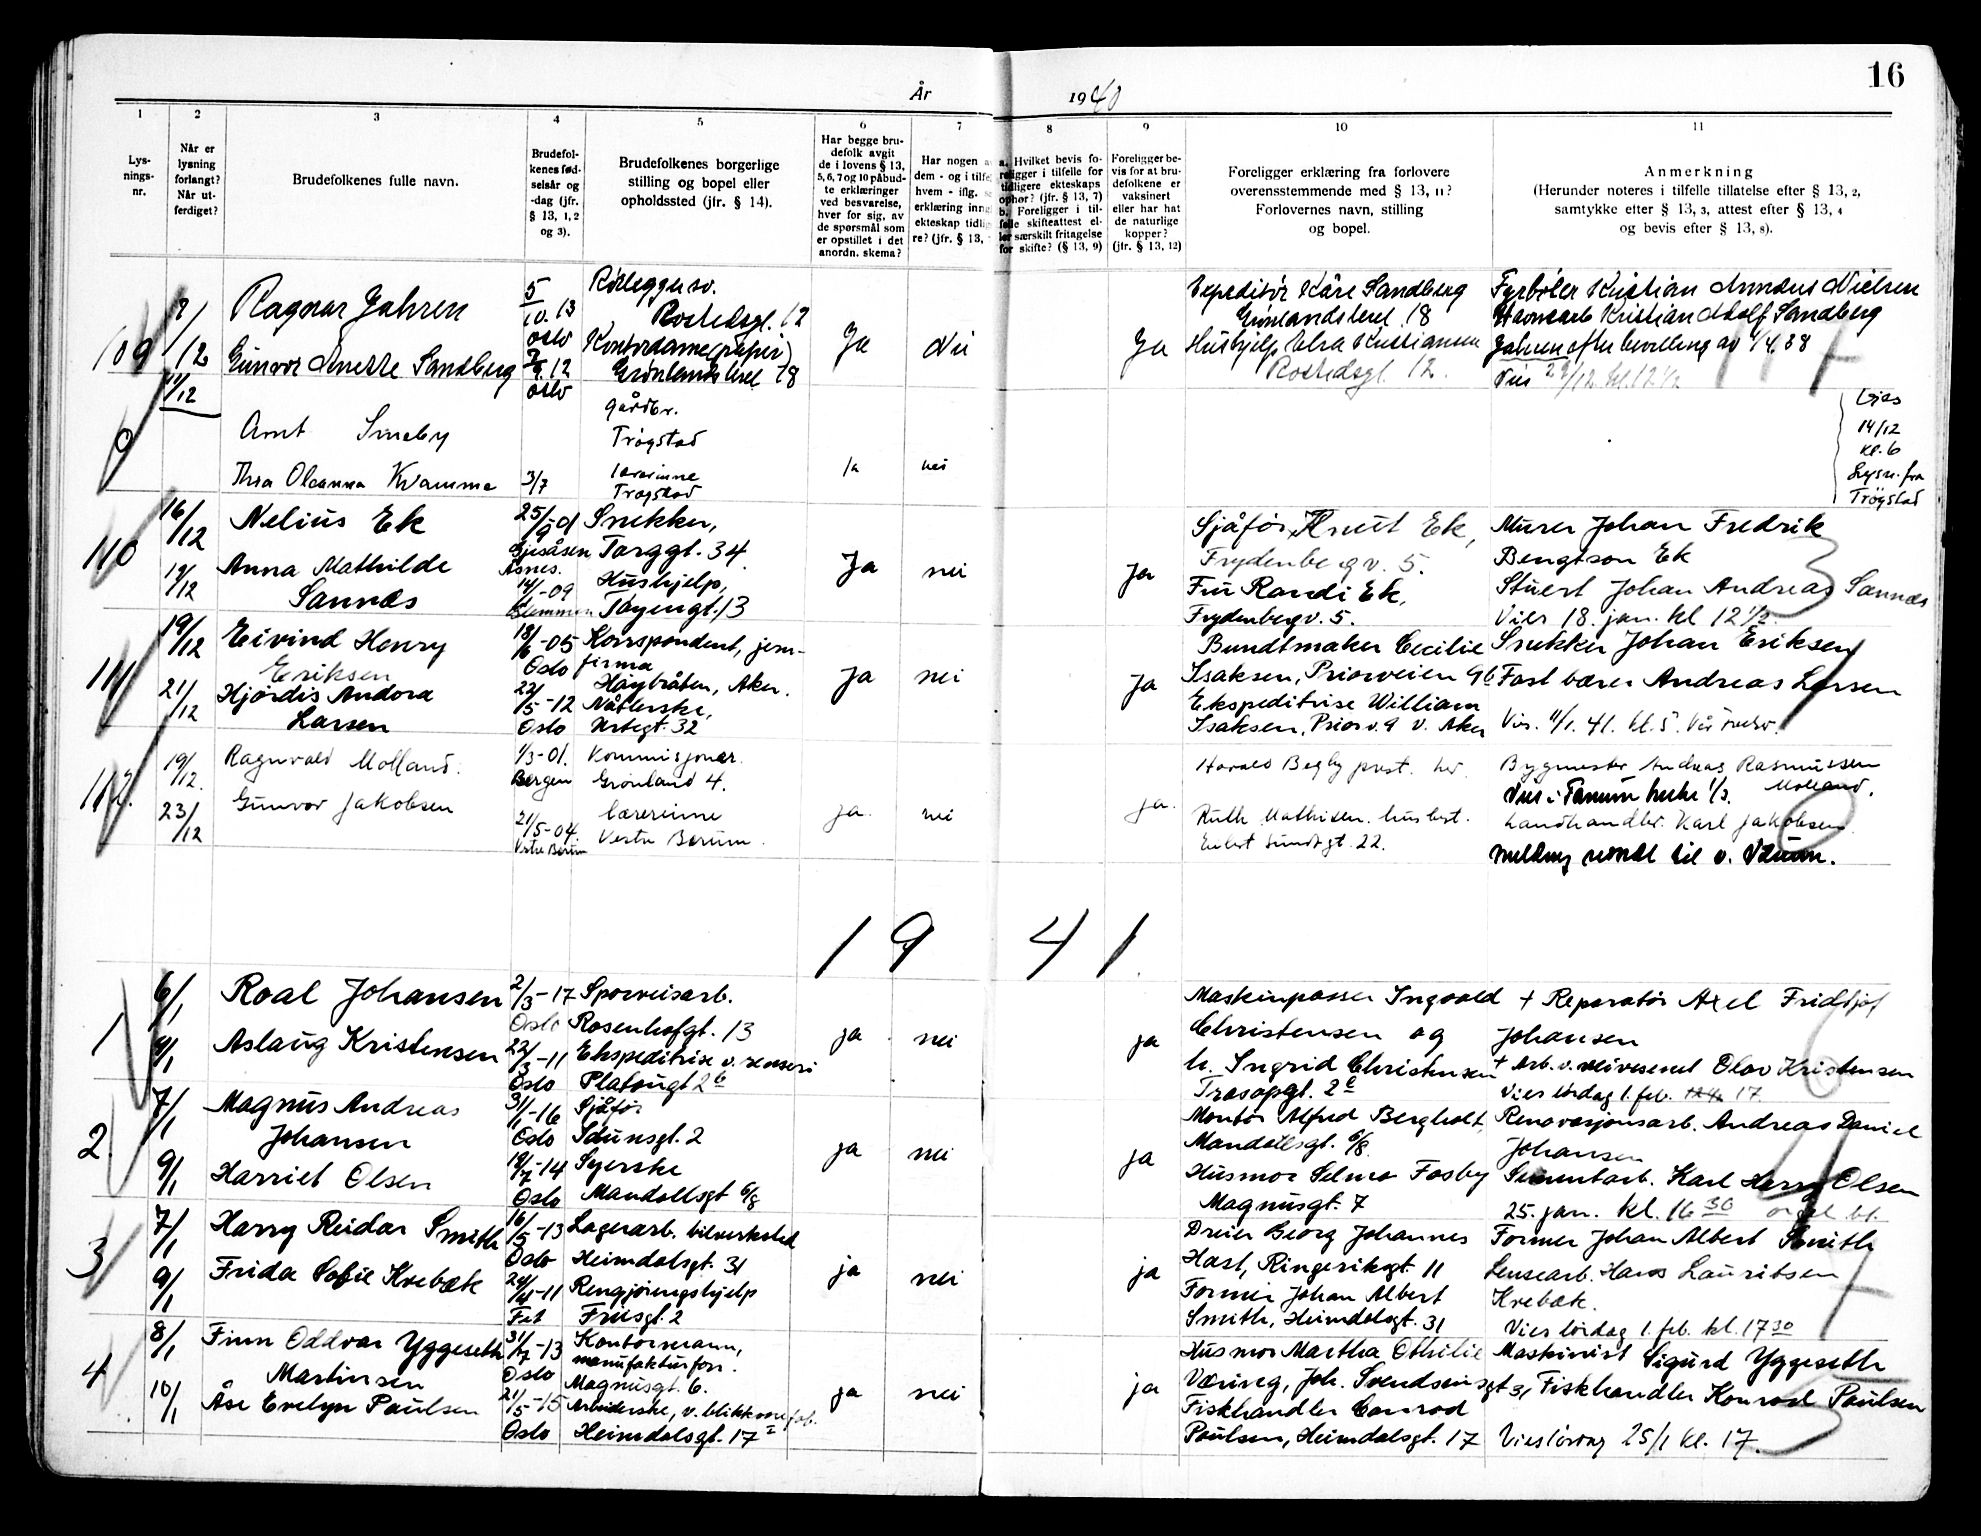 16
År 1940
1 2 3 4 5 6 7 8 9 10 11
Lysningsnr.
Når er lysning forlangt? Når utferdiget?
Brudefolkenes fulle navn.
Brudefolkenes fødselsår og -dag (jfr. § 13, 1, 2 og 3).
Brudefolkenes borgerlige stilling og bopel eller opholdssted (jfr. § 14).
Har begge brudefolk avgit de i lovens § 13, 5, 6, 7 og 10 påbudte erklæringer ved besvarelse, hver for sig, av de spørsmål som er opstillet i det anordn. skema?
Har nogen a
dem - og i tilfe
hvem - iflg. s
erklæring inng
ekteskap tidlig
re? (jfr. § 13,
a. Hvilket bevis foreligger i tilfelle for tidligere ekteskaps ophør? (jfr. § 13, 7)
b. Foreligger i tilfelle skifteattest eller særskilt fritagelse for skifte? (§ 13, 9)
Foreligger bevis for at brudefolkene er vaksinert eller har hat de naturlige kopper? (jfr. § 13, 12)
Foreligger erklæring fra forlovere overensstemmende med § 13, 11? Forlovernes navn, stilling og bopel.
Anmerkning
(Herunder noteres i tilfelle tillatelse efter § 13, 2, samtykke efter § 13, 3, attest efter § 13, 4 og bevis efter § 13, 8).
109
12
11/12
Ragnar Jahren
Gunvor Anette Sandberg
5/10. 13
Oslo
12
Oslo
Rørleggersv.
Rostedsgt. 12
Kontordame (papir)
Grønlandsleret 18
Ja
Nei
Ja
Expeditør Kåre Sandberg
Grønlandsleret 18
Hushjelp Elsa Kristiansen
Rostedsgt. 12.
Fyrbøter Kristian Amandus Nielsen
Kristian Adolf Sandberg
Jahren efter bevilling av 1/4. 38
Vies 29/12. kl. 12 1/2
0
Arnt Smeby
Thea Oleanna Kvamme
3/7
gårdbr.
Trøgstad
lærerinne
Trøgstad
ja
nei
Vies
14/12
kl. 6
Lysn. fra
Trøgstad
110
16/12
19/12
Nelius Ek
Anna Mathilde
Sannæs
25/9-01
Gjesåsen
Åsnes.
-09
Glemmen
Snekker,
Torggt. 34.
Hushjelp,
Tøyengt. 13
Ja
nei
Ja
Sjåfør, Knut Ek,
Frydenbergv. 5.
Fru Randi Ek,
Frydenbergv. 5.
Murer Johan Fredrik
Bengtson Ek
Stuert Johan Andreas Sannæs
Vies 18. jan. kl 12 1/2.
111
19/12
21/12
Eivind Henry
Eriksen
Hjørdis Andora
Larsen
-05
Oslo
22/5-12
Oslo
Korrspondent, jern-
firma
Høybråten, Aker.
Nåterske,
Urtegt. 32
Ja
nei
Ja
Bundtmaker Cecilie
Isaksen, Priorveien 9b
Ekspeditrise William
Isaksen, Priorv. 9 v. Aker
Snekker Johan Eriksen
Fast bærer Andreas Larsen
Vies. 11/1. 41. kl. 5.
112.
19/12.
23/12
Ragnvald Molland.
Gunvor Jakobsen
1/3-01.
Bergen
21/5-04.
Vestre Bærum
Kommisjonær.
Grønland 4.
Lærerinne
Vestre Bærum.
ja.
nei
ja.
Harald Begby prest.
Ruth Mathisen. husbest.
Eilert Sundsgt. 22.
Bygmester Andreas Rasmussen
Molland.
Vies i Tanum kirke 1/3.
Landhandler. Karl Jakobsen.
Melding sendt til v. Bærum.
1941.
1
6/1
9/1
Roal Johansen
Aslaug Kristensen
2/3-17
Oslo
22/3-11
Oslo
Sporveisarb.
Rosenhofgt. 13
Ekspeditrise v. renseri
Platougt 2b
ja
nei
ja
Maskinpasser Ingvald
Christensen og
h. Ingrid Christensen
Traaopgt. 2c
+ Reparatør Axel Fridtjof
Johansen
+ Arb. v. veivesenet Olav Kristensen
Vies lørdag 1. feb. 17
2.
7/1
9/1
Magnus Andreas
Johansen
Harriet Olsen
31/1-16
Oslo
19/7-14
Oslo
Sjåfør
Idunsgt. 2
Syerske
Mandallsgt 6/8
ja
nei
ja
Montør Alfred Bergholt,
Mandallsgt. 6/8.
Husmor Selma Fosby
Magnusgt. 7
Renovasjonsarb. Andreas Daniel
Johansen
Sementarb. Karl Harry Olsen
25. jan. kl. 16 30
3
7/1
9/1
Harry Reidar Smith
Frida Sofie Krebæk
16/5-13
Oslo
24/4-11
Fet
Lagerarb. bilverksted
Heimdalsgt. 31
Rengjøringshjelp
Friisgt. 2
ja
nei
ja
Dreier Georg Johannes
Hast, Ringeriksgt 11
Former Johan Albert
Smith, Heimdalsgt. 31
Former Johan Albert Smith
Lensearb. Hans Lauritsen
Krebæk.
Vies lørdag 1. feb. kl. 17 30
4
8/1
10/1
Finn Oddvar Yggeseth
Martinsen
Åse Evelyn Paulsen
31/7-13
Oslo
21/5-15
Oslo
Kontormann,
manufakturforr.
Magnusgt. 6.
Arbeiderske, v. blikkvarefab.
Heimdalsgt. 17 I
ja
nei
ja
Husmor Martha Othilie
Væriveg, Joh. Svendsensgt 3,
Fiskhandler Conrad
Paulsen, Heimdalsgt. 17
Maskinist Sigurd Yggeseth
Fiskhandler Konrad Paulsen
Vies lørdag 25/1 kl. 17.